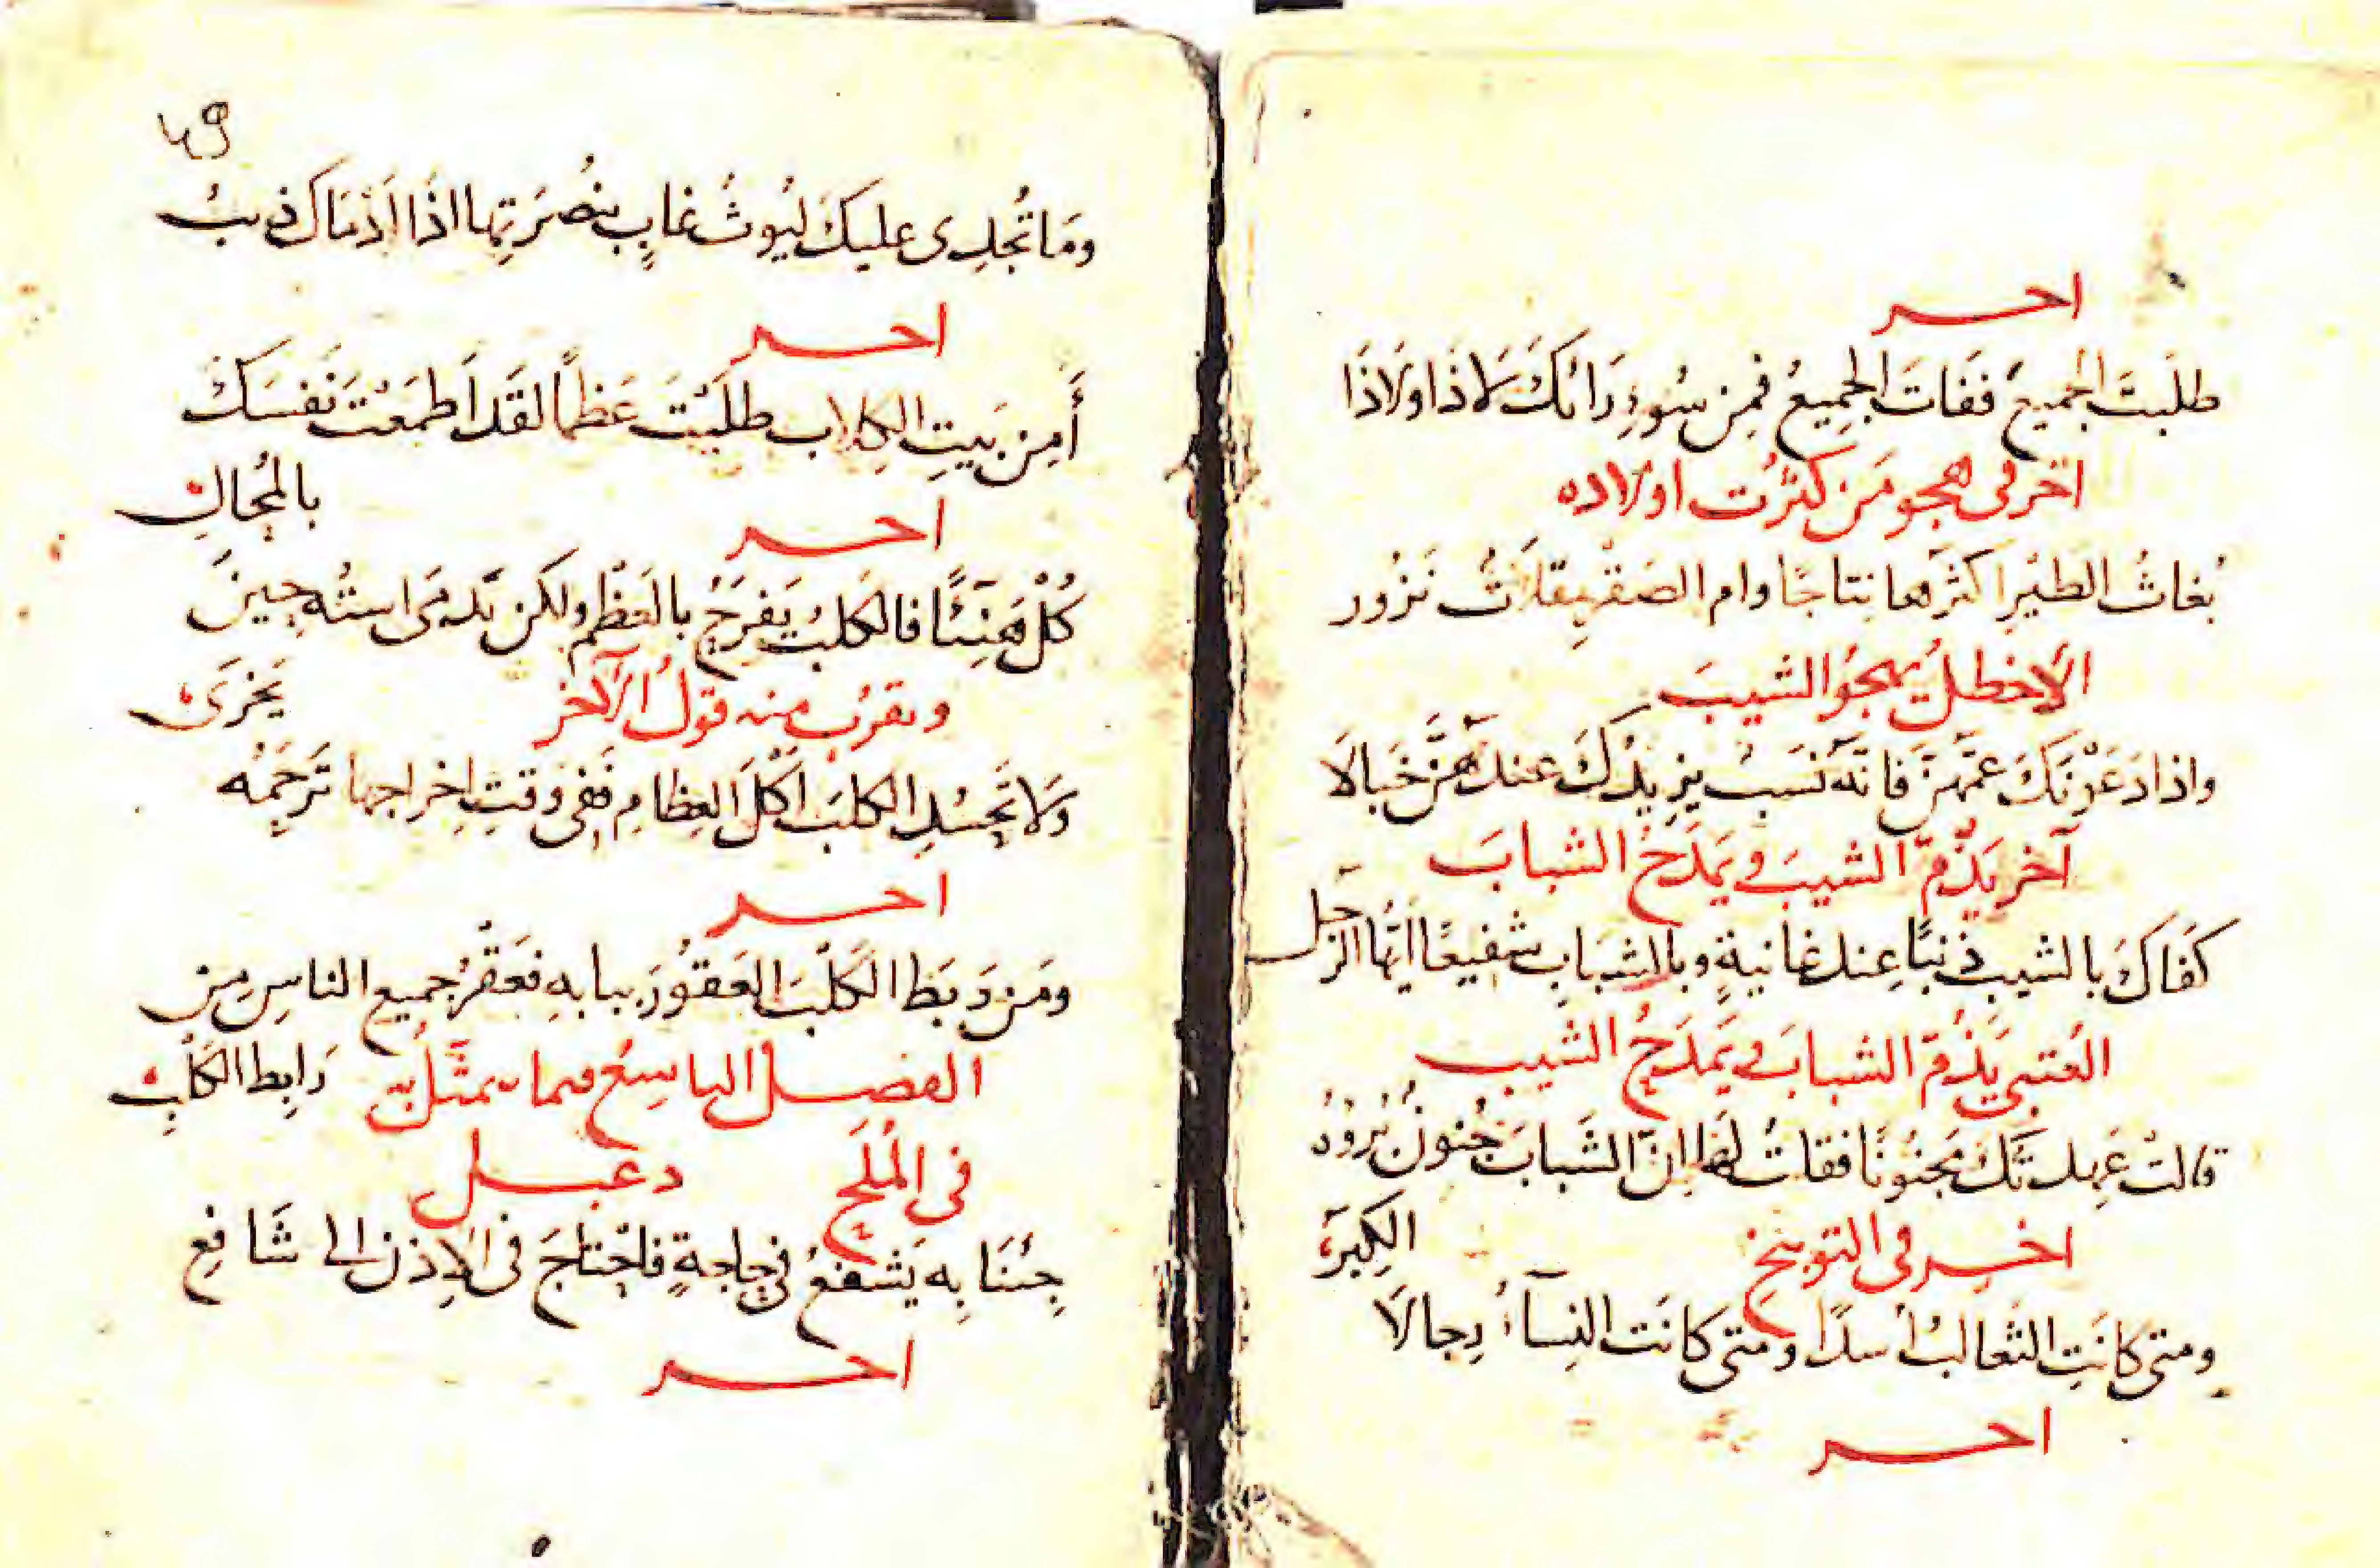 اخر
طلبتَ الجميعَ ففاتَ الجميعُ فمِن سُوءِ رَائكَ لا ذا ولا ذَا
آخر في هجو مَن كثُرت اولاده
بُغاثُ الطيْرِ اكثَرهَا نِتاجًا وام الصَقْرِ مِقلاتٌ نَزُور
الاخطلُ يهجوُ الشيبَ
واذا دَعَوْنَكَ عَمَّهنّ فانّه نَسَبٌ يزيدُكَ عندَهنَّ خَبالَا
آخر يَذّمّ الشيبَ ويَمدَحُ الشبابَ
كَفاكَ بالشيبِ ذَنبًا عِند غانيةٍ وبالشبَابِ شفيعًا ايّها الرَجل
العُتبى يَذُمّ الشبابَ ويَمدَحُ الشيبَ
قالتْ عَهِدتُكَ مَجنُونًا فقلتُ لهَا اِنّ الشَبابَ جُنونٌ بُرْؤُهُ
الكِبَرُ
اخر في التوبيخ
ومتى كانَتِ الثعالبُ أُسدًا ومتى كانَت النِسآءُ رِجالَا
اخر
٤٩
ومَا تُجدِى عليكَ ليُوثُ غابٍ بنُصْرَتِها اذَا اَدْمَاكَ ذيبُ
اخر
أَمِن بَيتِ الكِلابِ طلَبْتَ عَظمًا لقَد اَطمَعْتَ نَفسَكَ
بالمُحالِ
اخر
كُلْ هَنِيئًا فالكلبُ يَفرَحُ بالعَظْمِ ولكن تَدمَى استُه حِينَ
يَخرَى
ويقرُب منه قولُ الآخر
وَلا تَحسُدِ الكلبَ اَكلَ العِظامِ فَفى وَقتِ اِخراجها تَرحَمُه
اخر
ومَن رَبَطَ الكَلْبَ العَقوُرَ ببابهِ فعَقْرُ جميعِ الناسِ مِن
رَابِط الكَلْبِ
الفصل التاسعُ فيما يتمثَّلُ به
في المُلَحِ دعبل
جِئنَا بِه يَشفعُ في حاجةٍ فاحْتاجَ فى الاِذن الى شَافِعِ
اخر